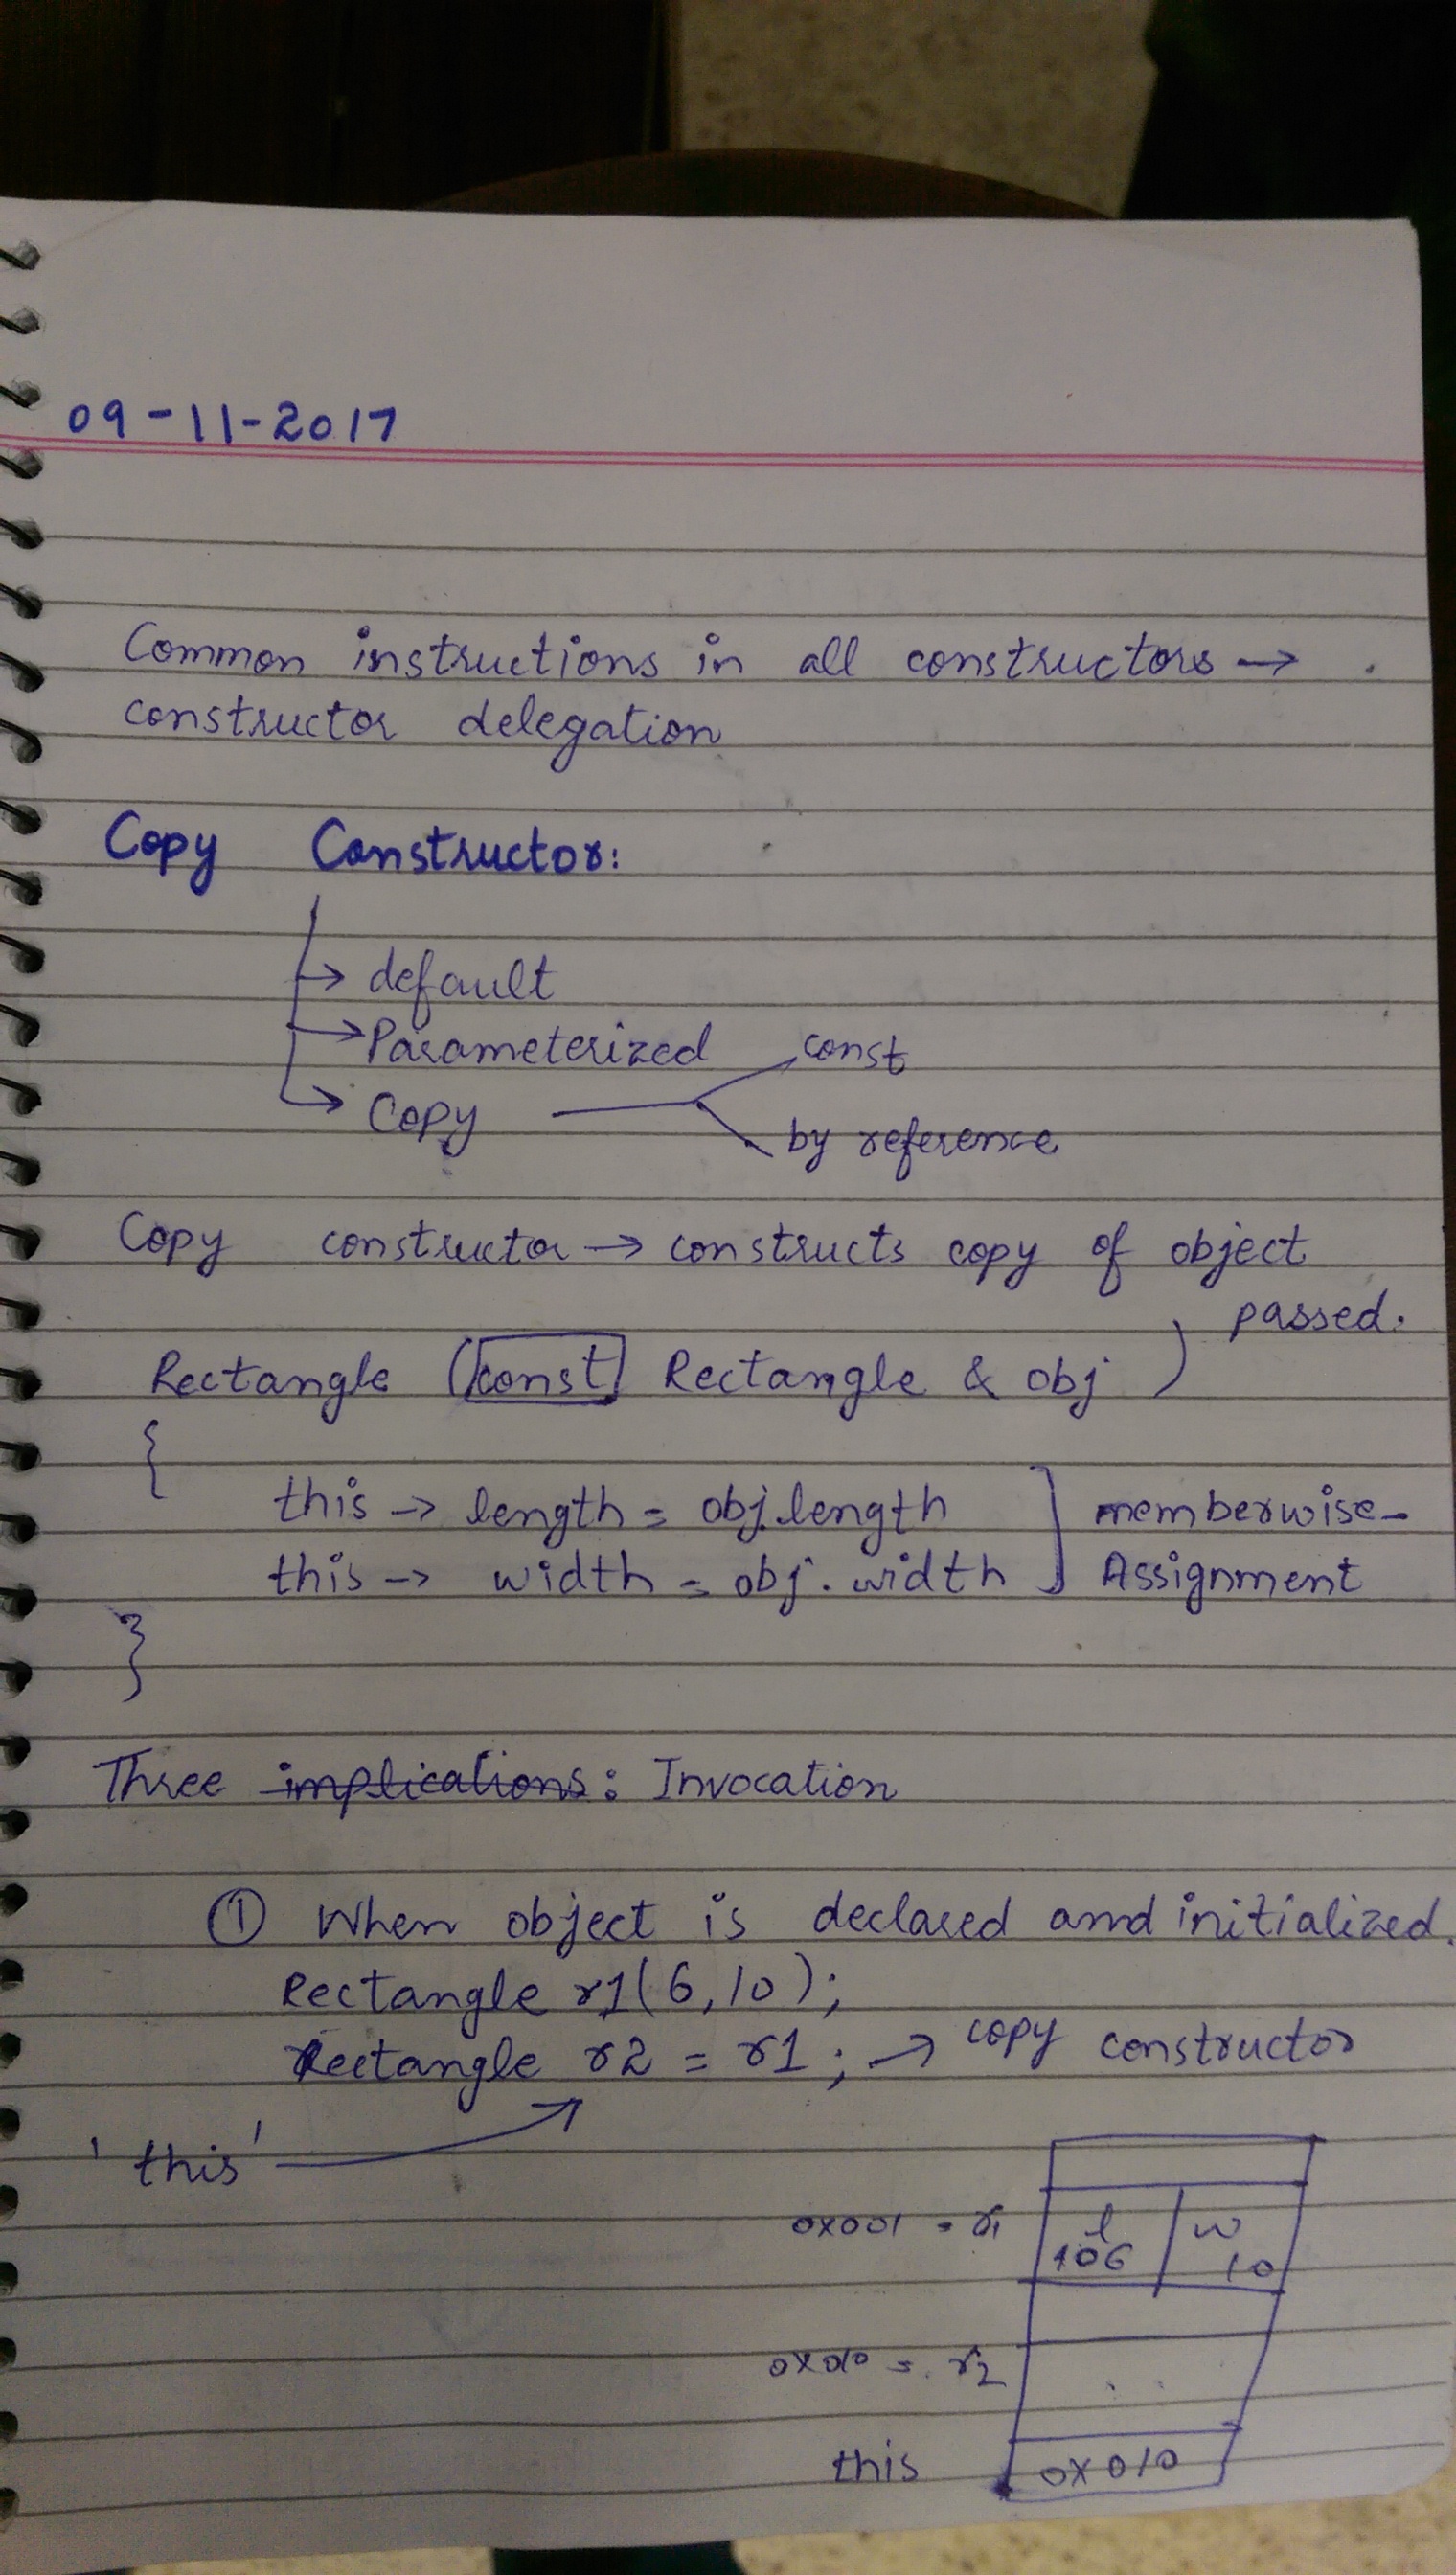 09-11-2017
Common instructions in all constructors →
constructor delegation
Copy Constructor:
→ default
→ Parameterized
const
→ Copy
by reference
Copy constructor → constructs copy of object
passed.
Rectangle (const Rectangle & obj )
{
this → length = obj.length
memberwise-
this → width = obj.width
Assignment
}
Three implications: Invocation
① When object is declared and initialized.
Rectangle r1(6,10);
Rectangle r2 = r1; → copy constructor
'this'
0x001 = r1
l w
10
0x010 = r2
this 0x010